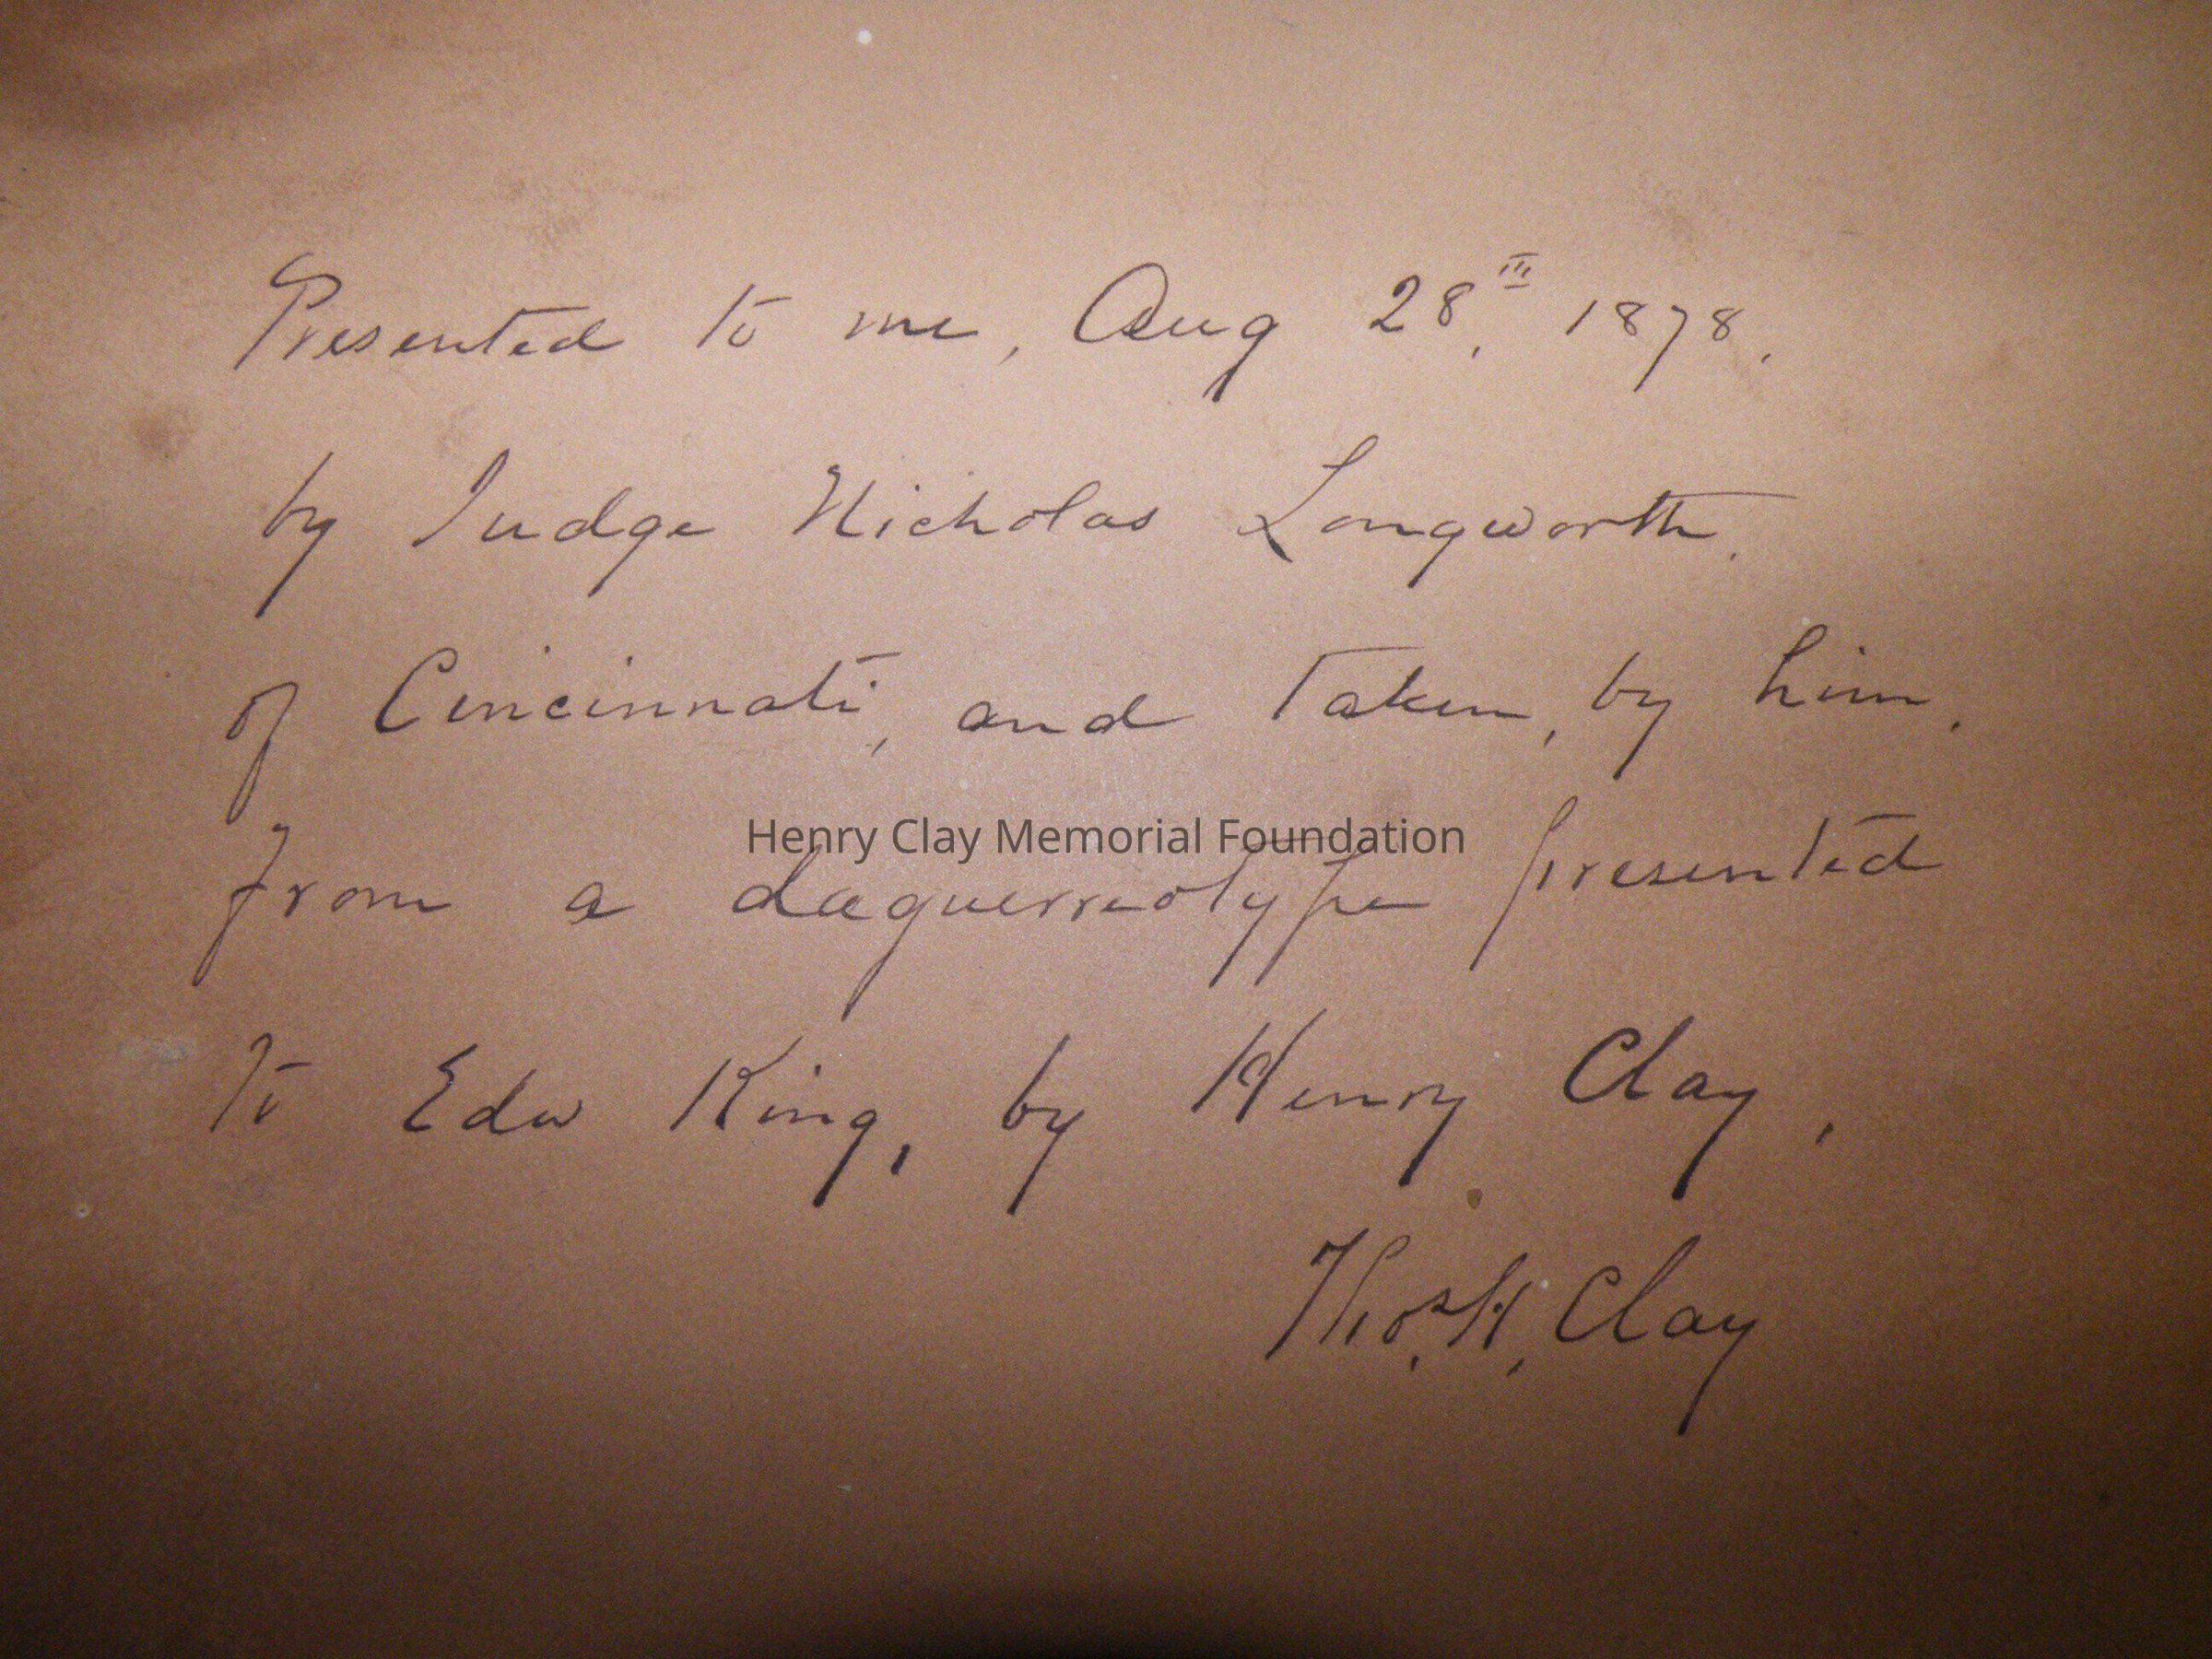 Presented to me, Aug 28th, 1878,
by Judge Nicholas Longworth,
of Cincinnati, and taken, by him,
Henry Clay Memorial Foundation
from a daguerreotype presented
to Edw King, by Henry Clay,
Thos. H. Clay